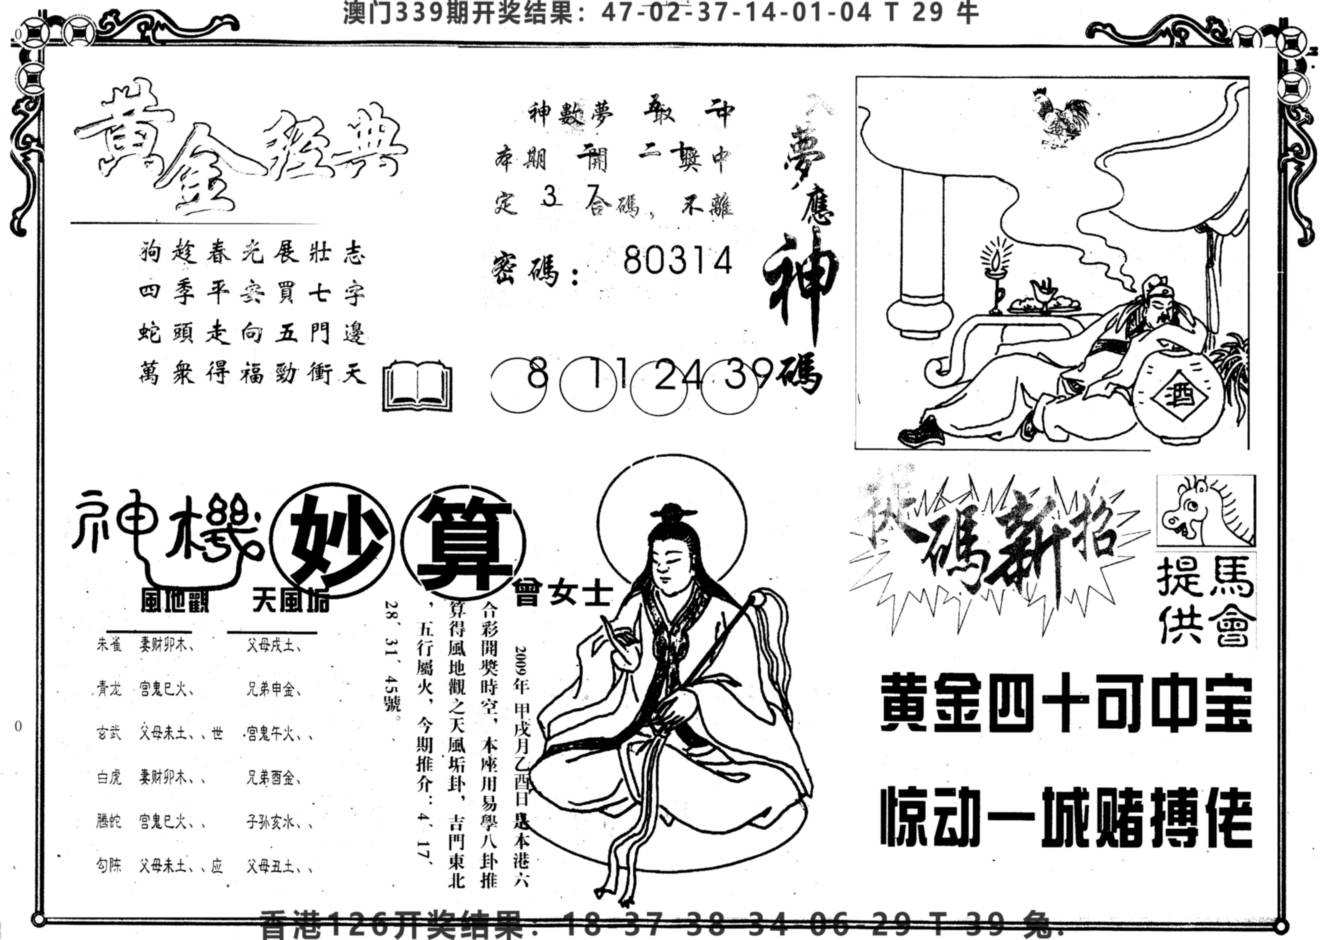 澳门339期开奖结果：47-02-37-14-01-04 T 29 牛
黄金经典
狗趁春光展壯志
四季平安買七字
蛇頭走向五門邊
萬衆得福勁衝天
神數夢 取 中
本期 開 二 獎中
定 3 7 合碼，不離
密碼： 80314
8 11 24 39
夢應神碼
酒
神機妙算
曾女士
風地觀 天風垢
朱雀 妻财卯木、 父母戌土、
青龙 官鬼巳火、 兄弟申金、
玄武 父母未土、、世 官鬼午火、、
白虎 妻财卯木、、 兄弟酉金、
腾蛇 官鬼巳火、、 子孙亥水、、
勾陈 父母未土、、应 父母丑土、、
2009年 甲戌月乙酉日 本港六
合彩開獎時空，本座用易學八卦推
算得風地觀之天風垢卦，吉門東北
，五行屬火，今期推介：4、17、
28、31、45號。
碼新招
馬會
提供
黄金四十可中宝
惊动一城赌搏佬
香港126开奖结果：18-37-38-34-06-29 T 39 兔.